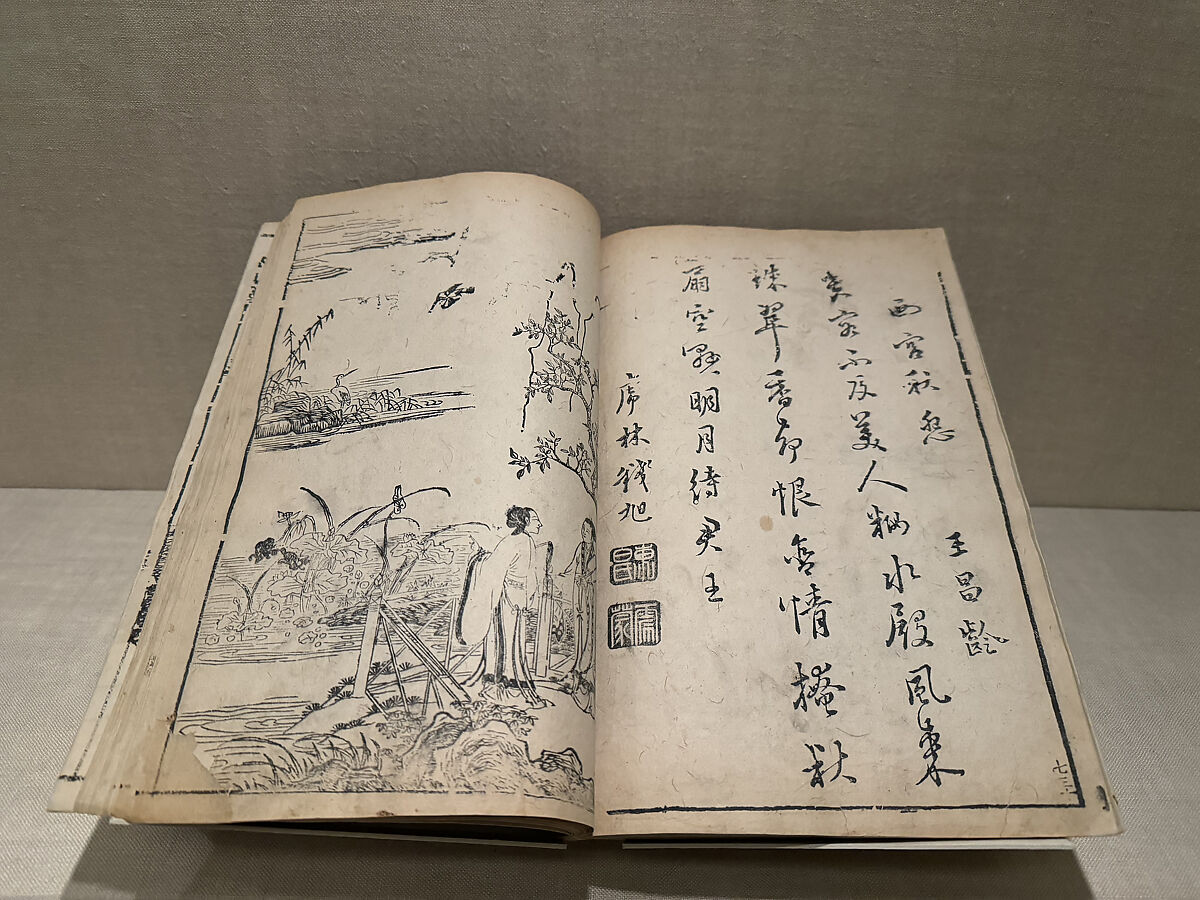 西宮秋怨
王昌齡
芙容不及美人粧水殿風來
珠翠香却恨含情掩秋
扇空懸明月待君王
虎林錢旭
七三